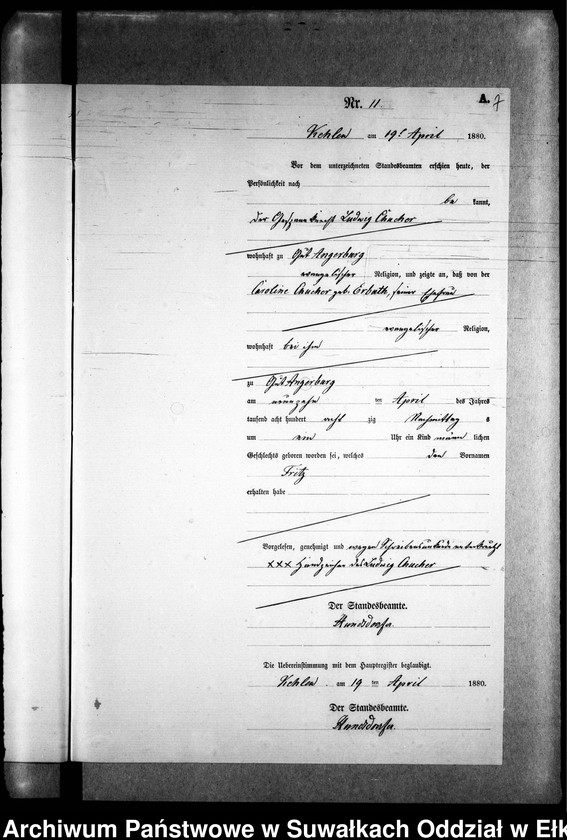 A. 7
Nr. 11.
Kehlen am 19t April 1880.
Vor dem unterzeichneten Standesbeamten erschien heute, der
Persönlichkeit nach
be kannt,
der Gespannknecht Ludwig Chuchor
wohnhaft zu Gut Angerburg
evangelischer Religion, und zeigte an, daß von der
Caroline Chuchor geb. Erbuth, seiner Ehefrau
evangelischer Religion,
wohnhaft bei ihm
zu Gut Angerburg
am neunzehn ten April des Jahres
tausend acht hundert acht zig Nachmittag s
um ein Uhr ein Kind männ lichen
Geschlechts geboren worden sei, welches den Vornamen
Fritz
erhalten habe
Vorgelesen, genehmigt und wegen Schreibensunkunde unterkreuzt
xxx Handzeichen des Ludwig Chuchor
Der Standesbeamte.
Die Uebereinstimmung mit dem Hauptregister beglaubigt.
Kehlen am 19 ten April 1880.
Der Standesbeamte.
Archiwum Państwowe w Suwałkach Oddział w Ełk